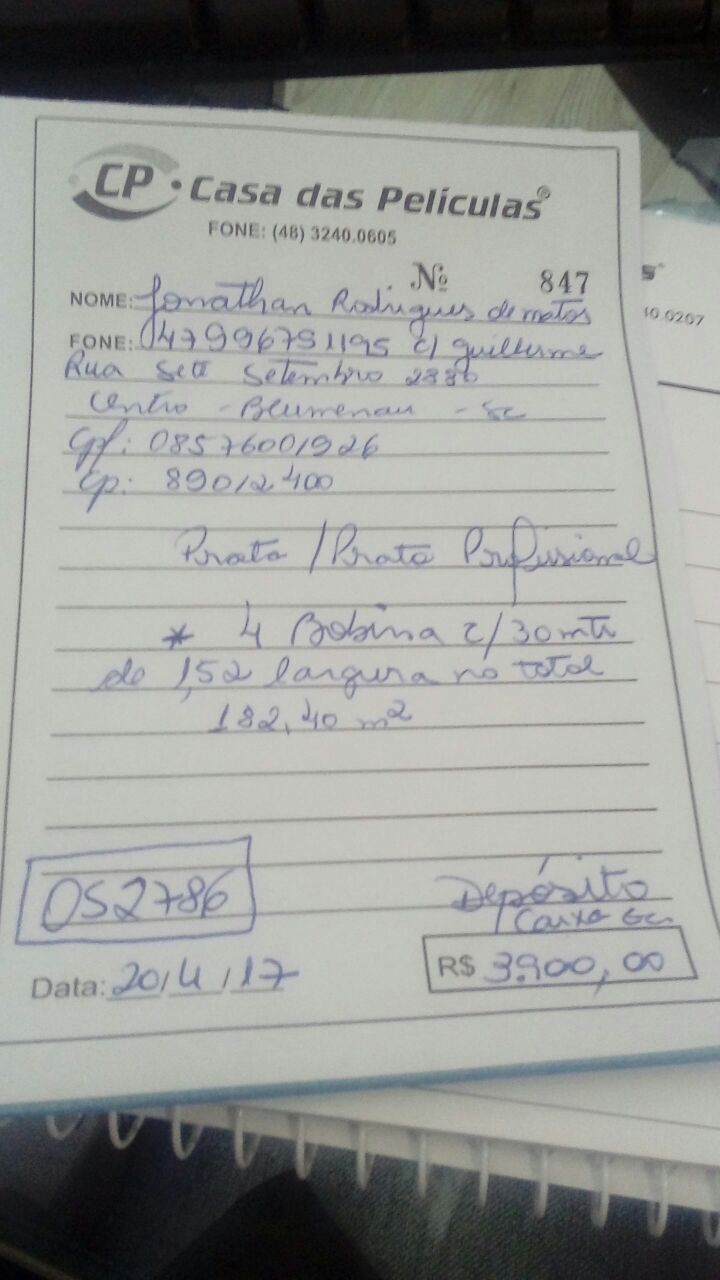 CP • Casa das Películas®
FONE: (48) 3240.0605
Nº 847
NOME: Jonathan Rodrigues de matos
FONE: 047996791195 c/ guilherme
Rua Sete Setembro 2886
Centro - Blumenau - SC
Cpf: 08576001926
Cp: 89012400
Prata / Prata Profissional
* 4 Bobina c/30 mts
de 1,52 largura no total
182,40 m²
OS2786
Depósito
Caixa
Data: 20/4/17
R$ 3.900,00
10.0207